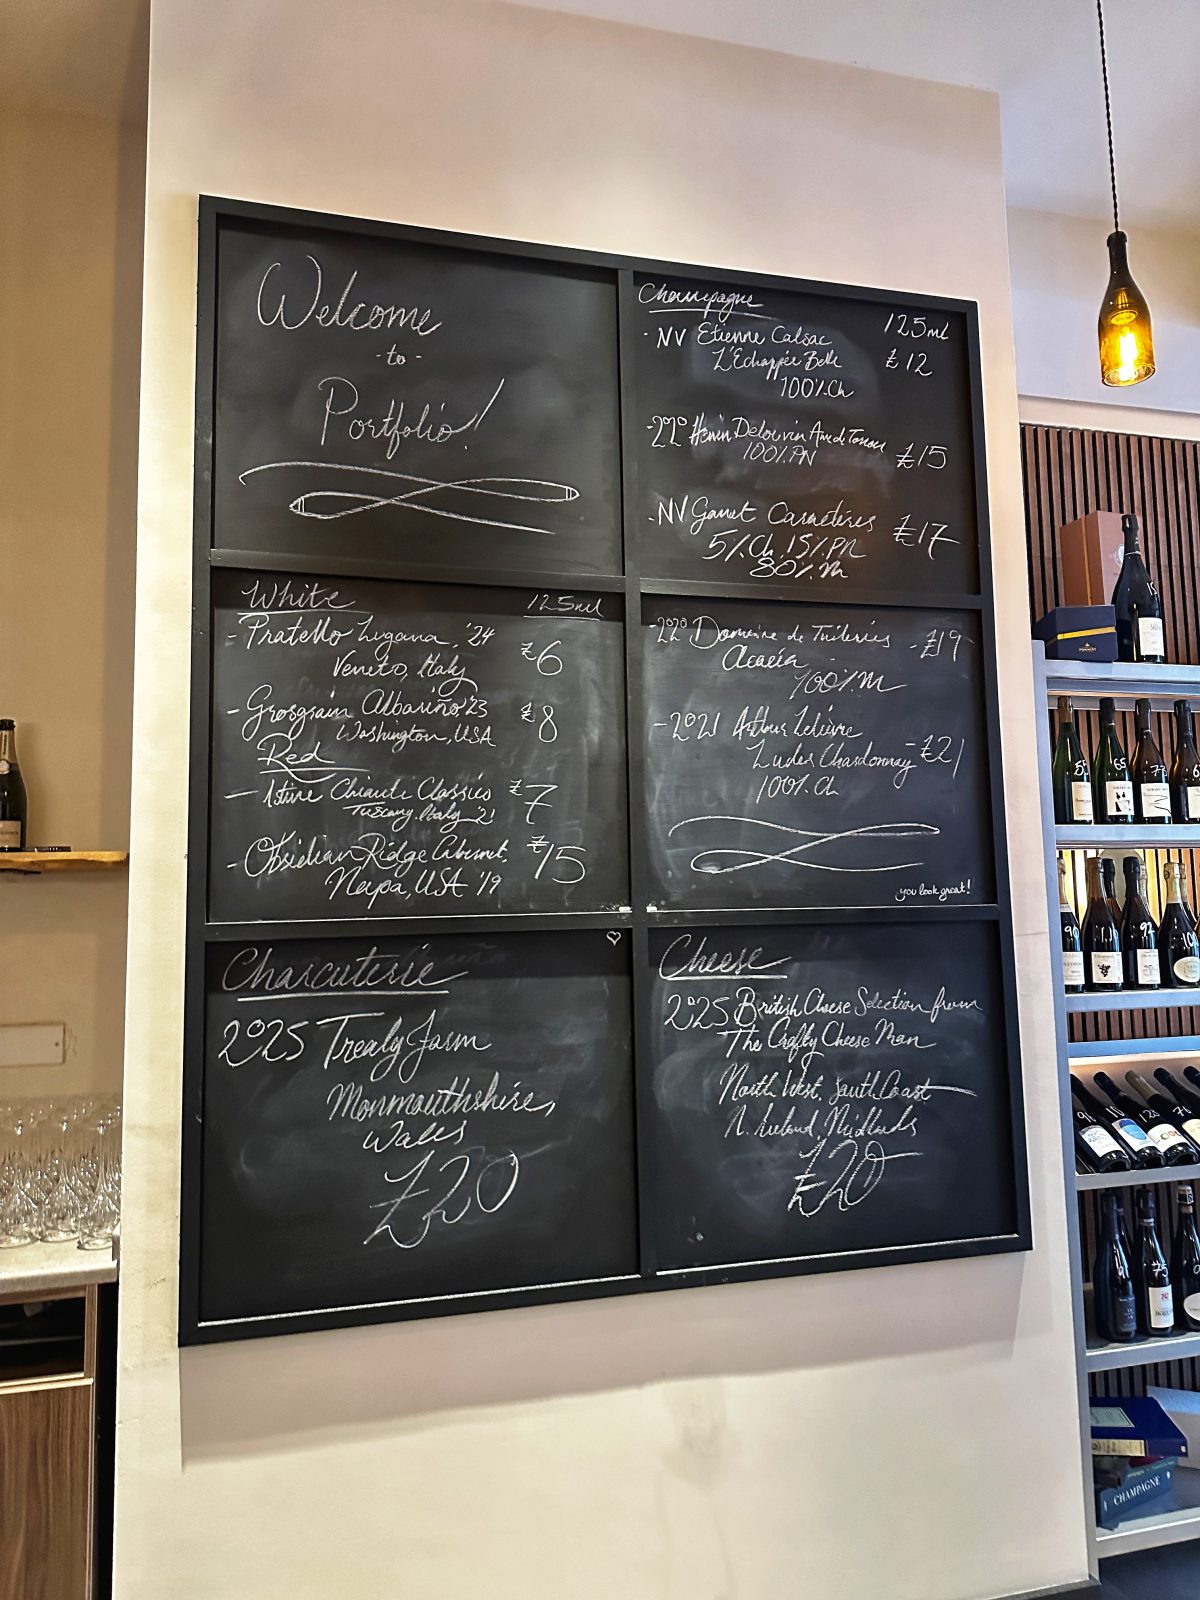 Welcome
-to-
Portfolio!
Champagne
125ml
- NV Etienne Calsac £12
L'Échappée Belle
100% Ch
- 2020 Henin Delouvin £15
100% PN
- NV Ganet £17
5% Ch 15% PN
80% M
White 125ml
- Pratello Lugana, '24 £6
Veneto, Italy
- Grosgrain Albariño '23 £8
Washington, USA
Red
- Istine Chianti Classico £7
Tuscany, Italy '21
- Obsidian Ridge Cabernet, £15
Napa, USA '19
- 2020 Domaine de Tuileries - £19
Acacia
100% M
- 2021 Arthur Lelièvre
Ludes Chardonnay £21
100% Ch
you look great!
Charcuterie
2025 Trealy Farm
Monmouthshire,
Wales
£20
Cheese
2025 British Cheese Selection from
The Crafty Cheese Man
North West, South Coast
N. Ireland, Midlands
£20
CHAMPAGNE